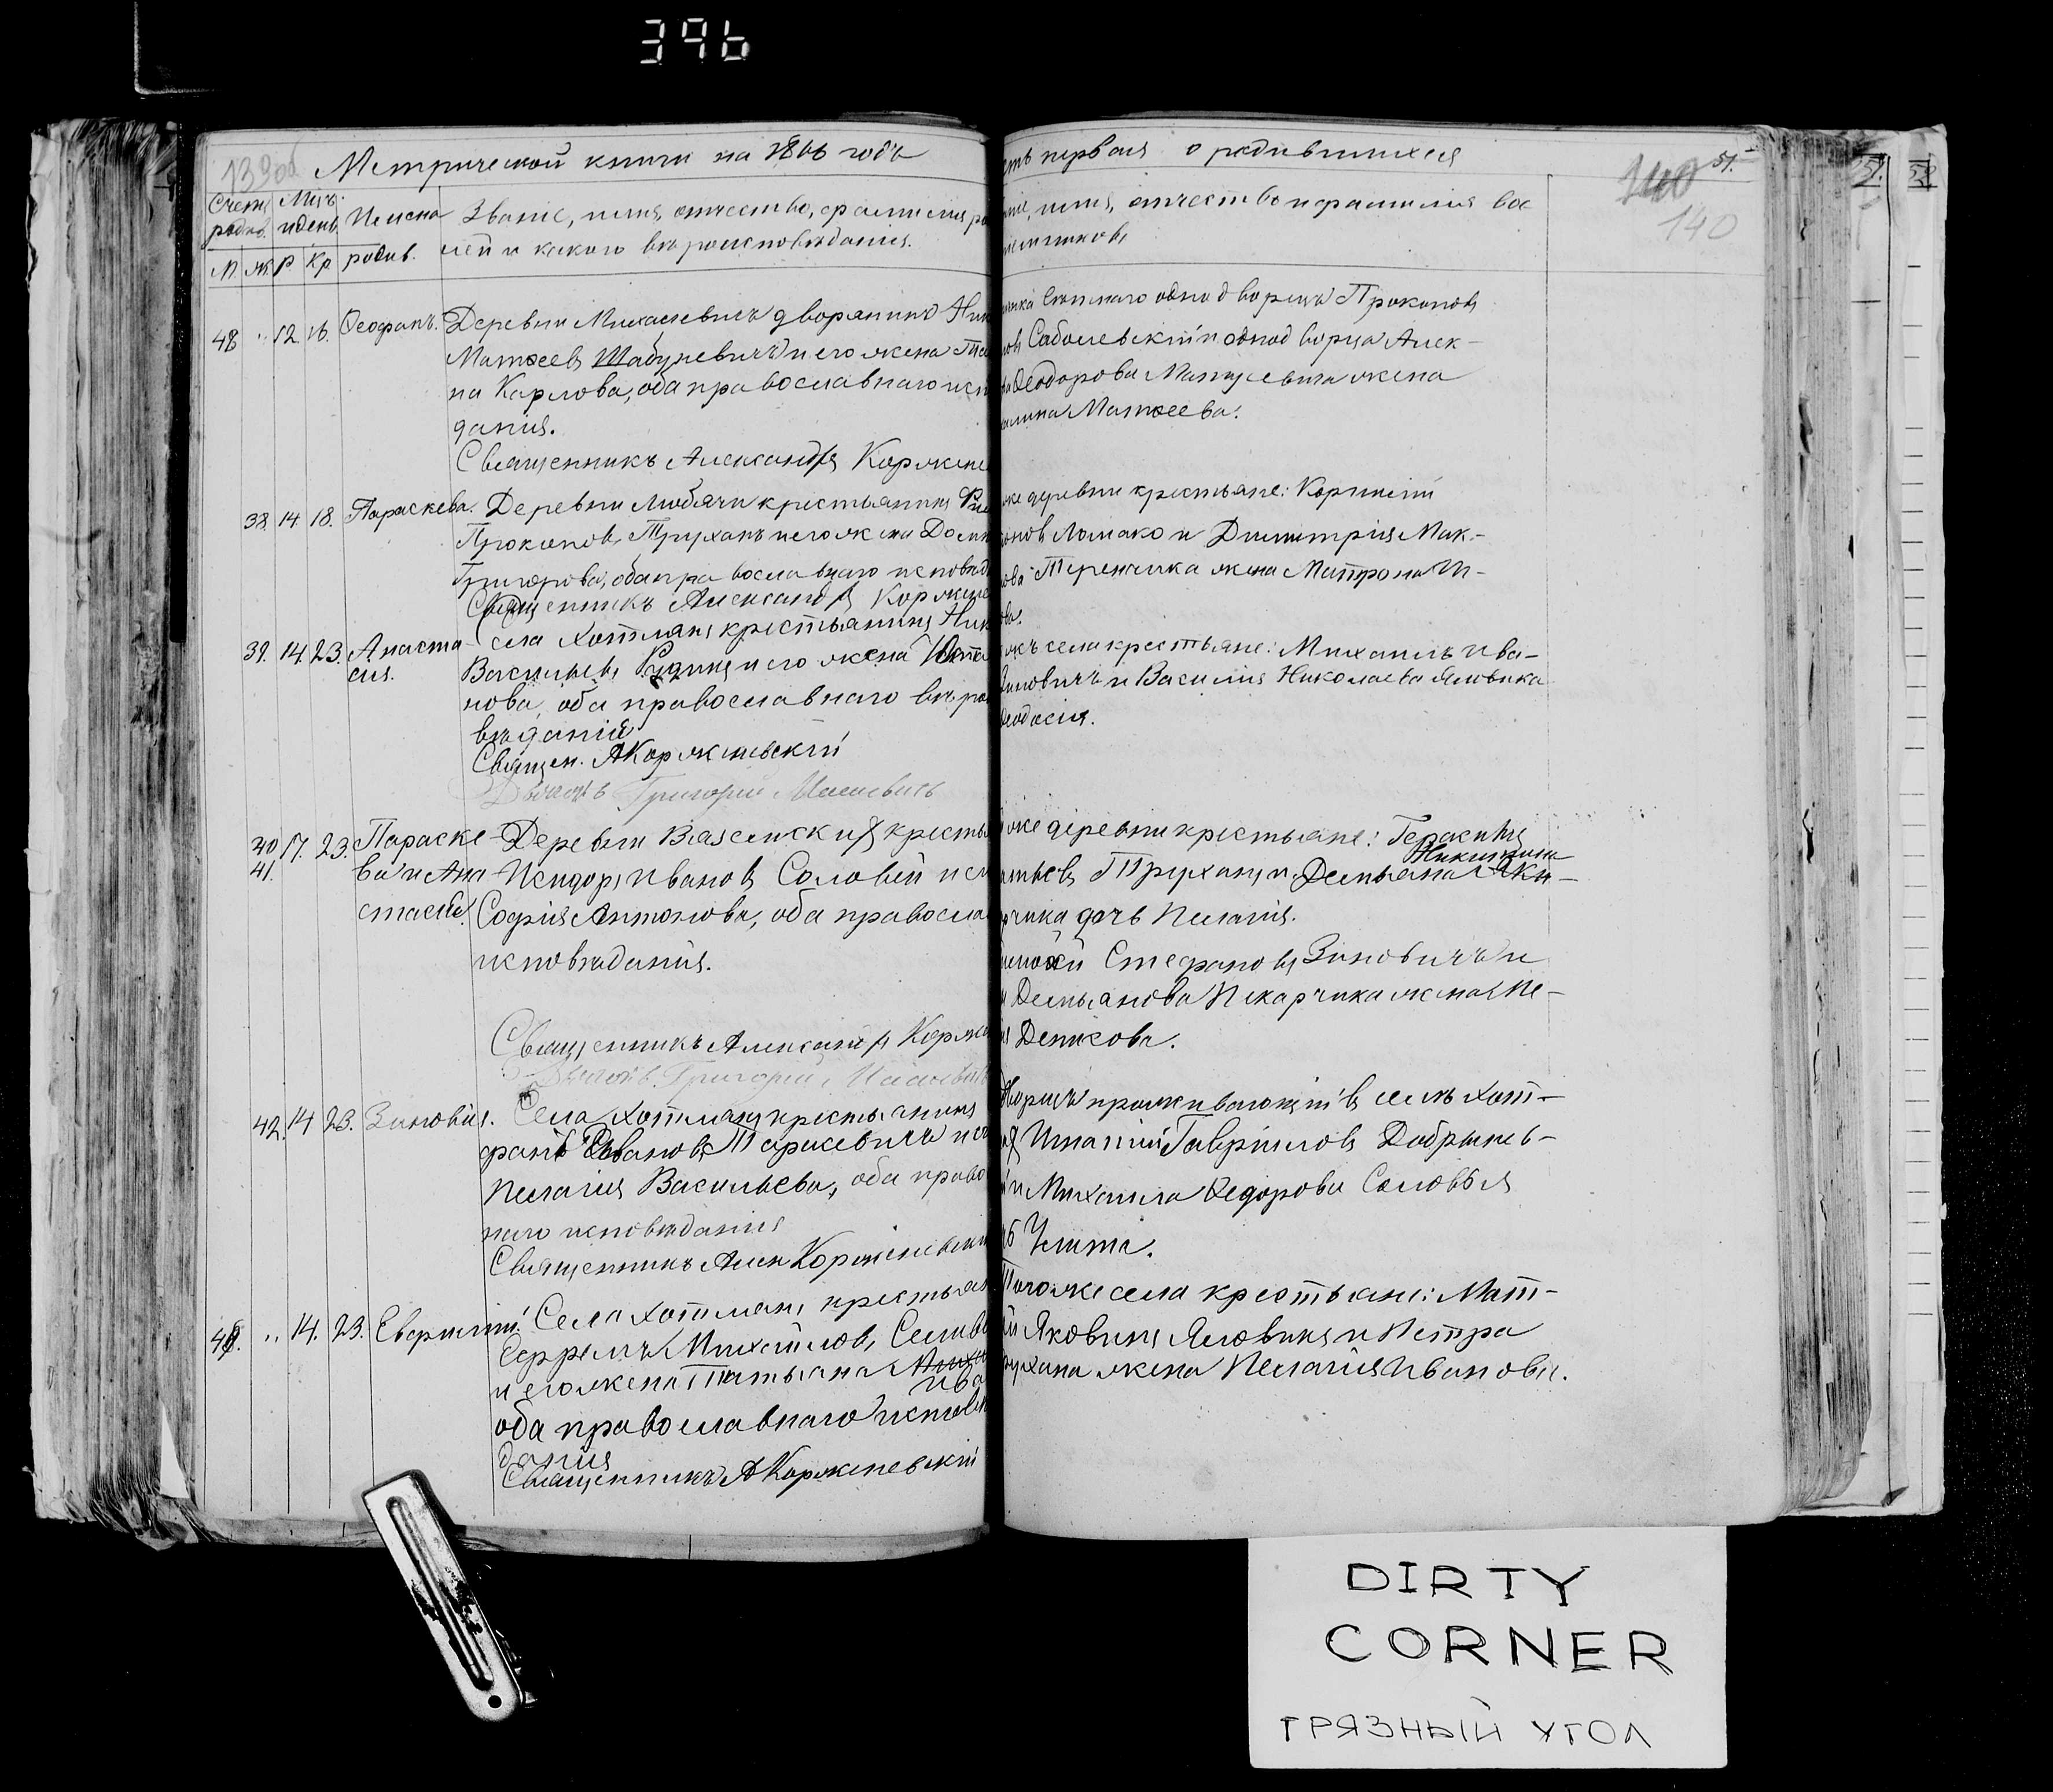 396
139об Метрической книги на 1866 годъ
Счетъ родив. Мѣц. и день Имена родив.
Званіе, имя, отчество, фамилия ро
лей и какого вѣроисповѣданія.
М. Ж. Р Кр
48 " 12. 16. Ѳеофанъ. Деревни Михалевичъ дворянинъ Ник
Матѳеевъ Шабулевичъ и его жена Та
на Карлова, оба православнаго исп
данія.
Священникъ Александръ Коржене
38 14 18. Параскева. Деревни Любячи крестьянинъ
Прокоповъ Труханъ и его жена Доми
Григорова, оба православнаго исповѣд
Священникъ Александръ Коржене
39. 14. 23. Анаста- Села Хотлянъ крестьянинъ Ник
сія. Васильевъ и его жена
нова, оба православнаго вѣро
вѣданія
Священ. А Корженевскій
Григорій
40 17. 23. Параске- Деревни крестья
41. ва и Ана- Исидоръ Ивановъ Соловей и ег
стасія. Софія Антонова, оба правосла
исповѣданія.
Священникъ Александръ Корже
Григорій
42. 14 23. Зиновія. Села Хотлянъ крестьянинъ
фанъ Ивановъ Тарасевичъ и ег
Пелагія Васильева, оба право
наго исповѣданія
Священникъ Алек Корженевскій
49. " 14. 23. Села Хотлянъ крестьян
Ефремъ Михайловъ
и его жена Татьяна Миха
Ива
оба православнаго исповѣ
данія
Священникъ А Корженевскій
сть первая о родившихся
51.
140
140
ніе, имя, отчество и фамилия вос
емниковъ
однодворецъ Прокопов
Соболевскій и однодворца Алек-
Ѳеодорова Матусевича жена
Матѳеева.
же деревни крестьяне: Корнилій
оновъ Ломако и Димитрія Мак-
ова Теренчика жена Матрона И-
ова.
жъ села крестьяне: Михаилъ Ива-
Зиновичъ и Василія Николаева Яловика
Ѳеодосія.
же деревни крестьяне: Герасимъ
Никитина
Труханъ и Демьяна Яки-
дочь Пелагія.
Стефановъ Зиновичъ и
Демьянова Пекарчика жена Пе-
Денисова.
дворецъ проживающій въ селѣ Хот-
Игнатій Гавріиловъ Добрынев-
и Михаила Ѳедорова Соловья
чь
Тогоже села крестьяне: Мат-
й Яковинъ Яловикъ и Петра
рухана жена Пелагія Иванова.
DIRTY
CORNER
ГРЯЗНЫЙ УГОЛ